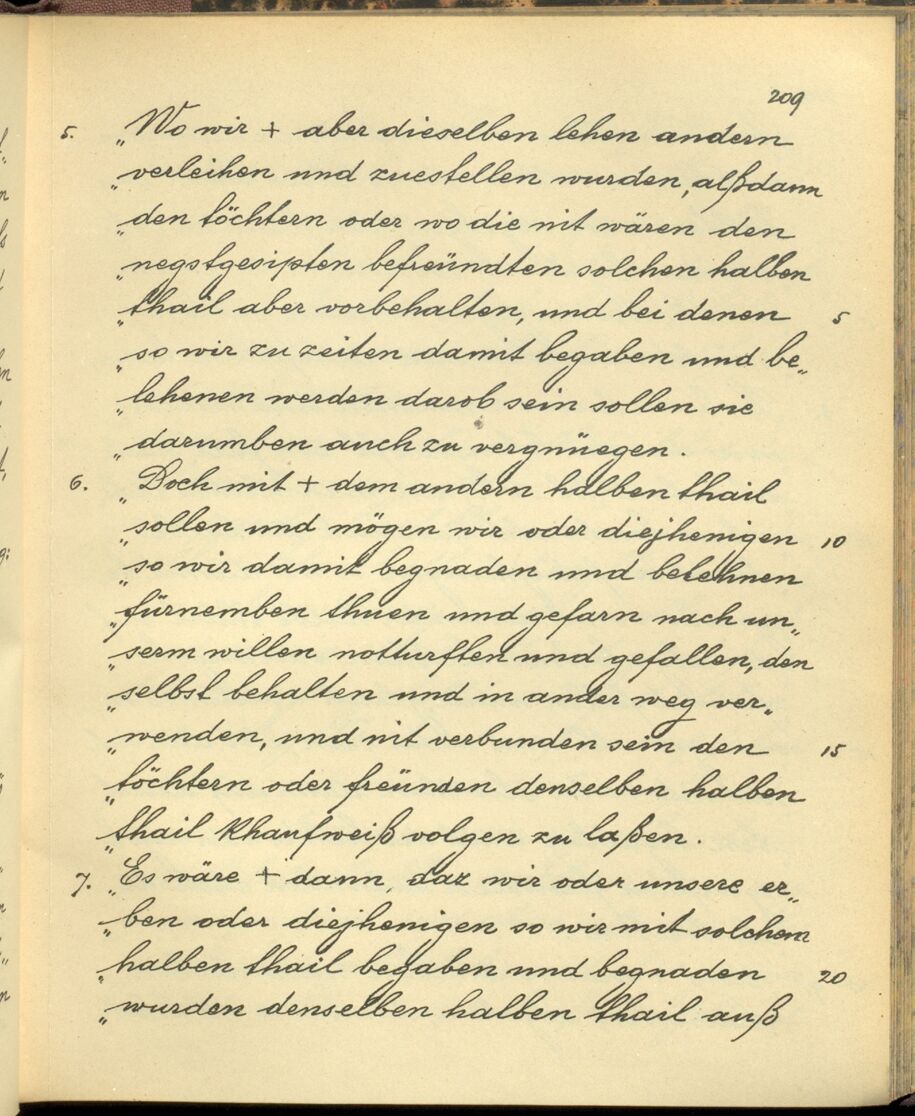 209
5. „Wo wir + aber dieselben lehen andern
„verleihen und zuestellen wurden, alßdann
„den töchtern oder wo die nit wären den
„negstgesipten befreündten solchen halben
„thail aber vorbehalten, und bei denen 5
„so wir zu zeiten damit begaben und be„
„lehenen werden darob sein sollen sie
„darumben auch zu vergnüegen.
6. „Doch mit + dem andern halben thail
„sollen und mögen wir oder diejhenigen 10
„so wir damit begnaden und belehnen
„fürnemben thuen und gefarn nach un„
„serm willen notturften und gefallen, den
„selbst behalten und in ander weg ver„
„wenden, und nit verbunden sein den 15
„töchtern oder freünden denselben halben
„thail khaufweiß volgen zu laßen.
7. „Es wäre + dann, daz wir oder unsere er„
„ben oder diejhenigen so wir mit solchem
„halben thail begaben und begnaden 20
„wurden denselben halben thail auß